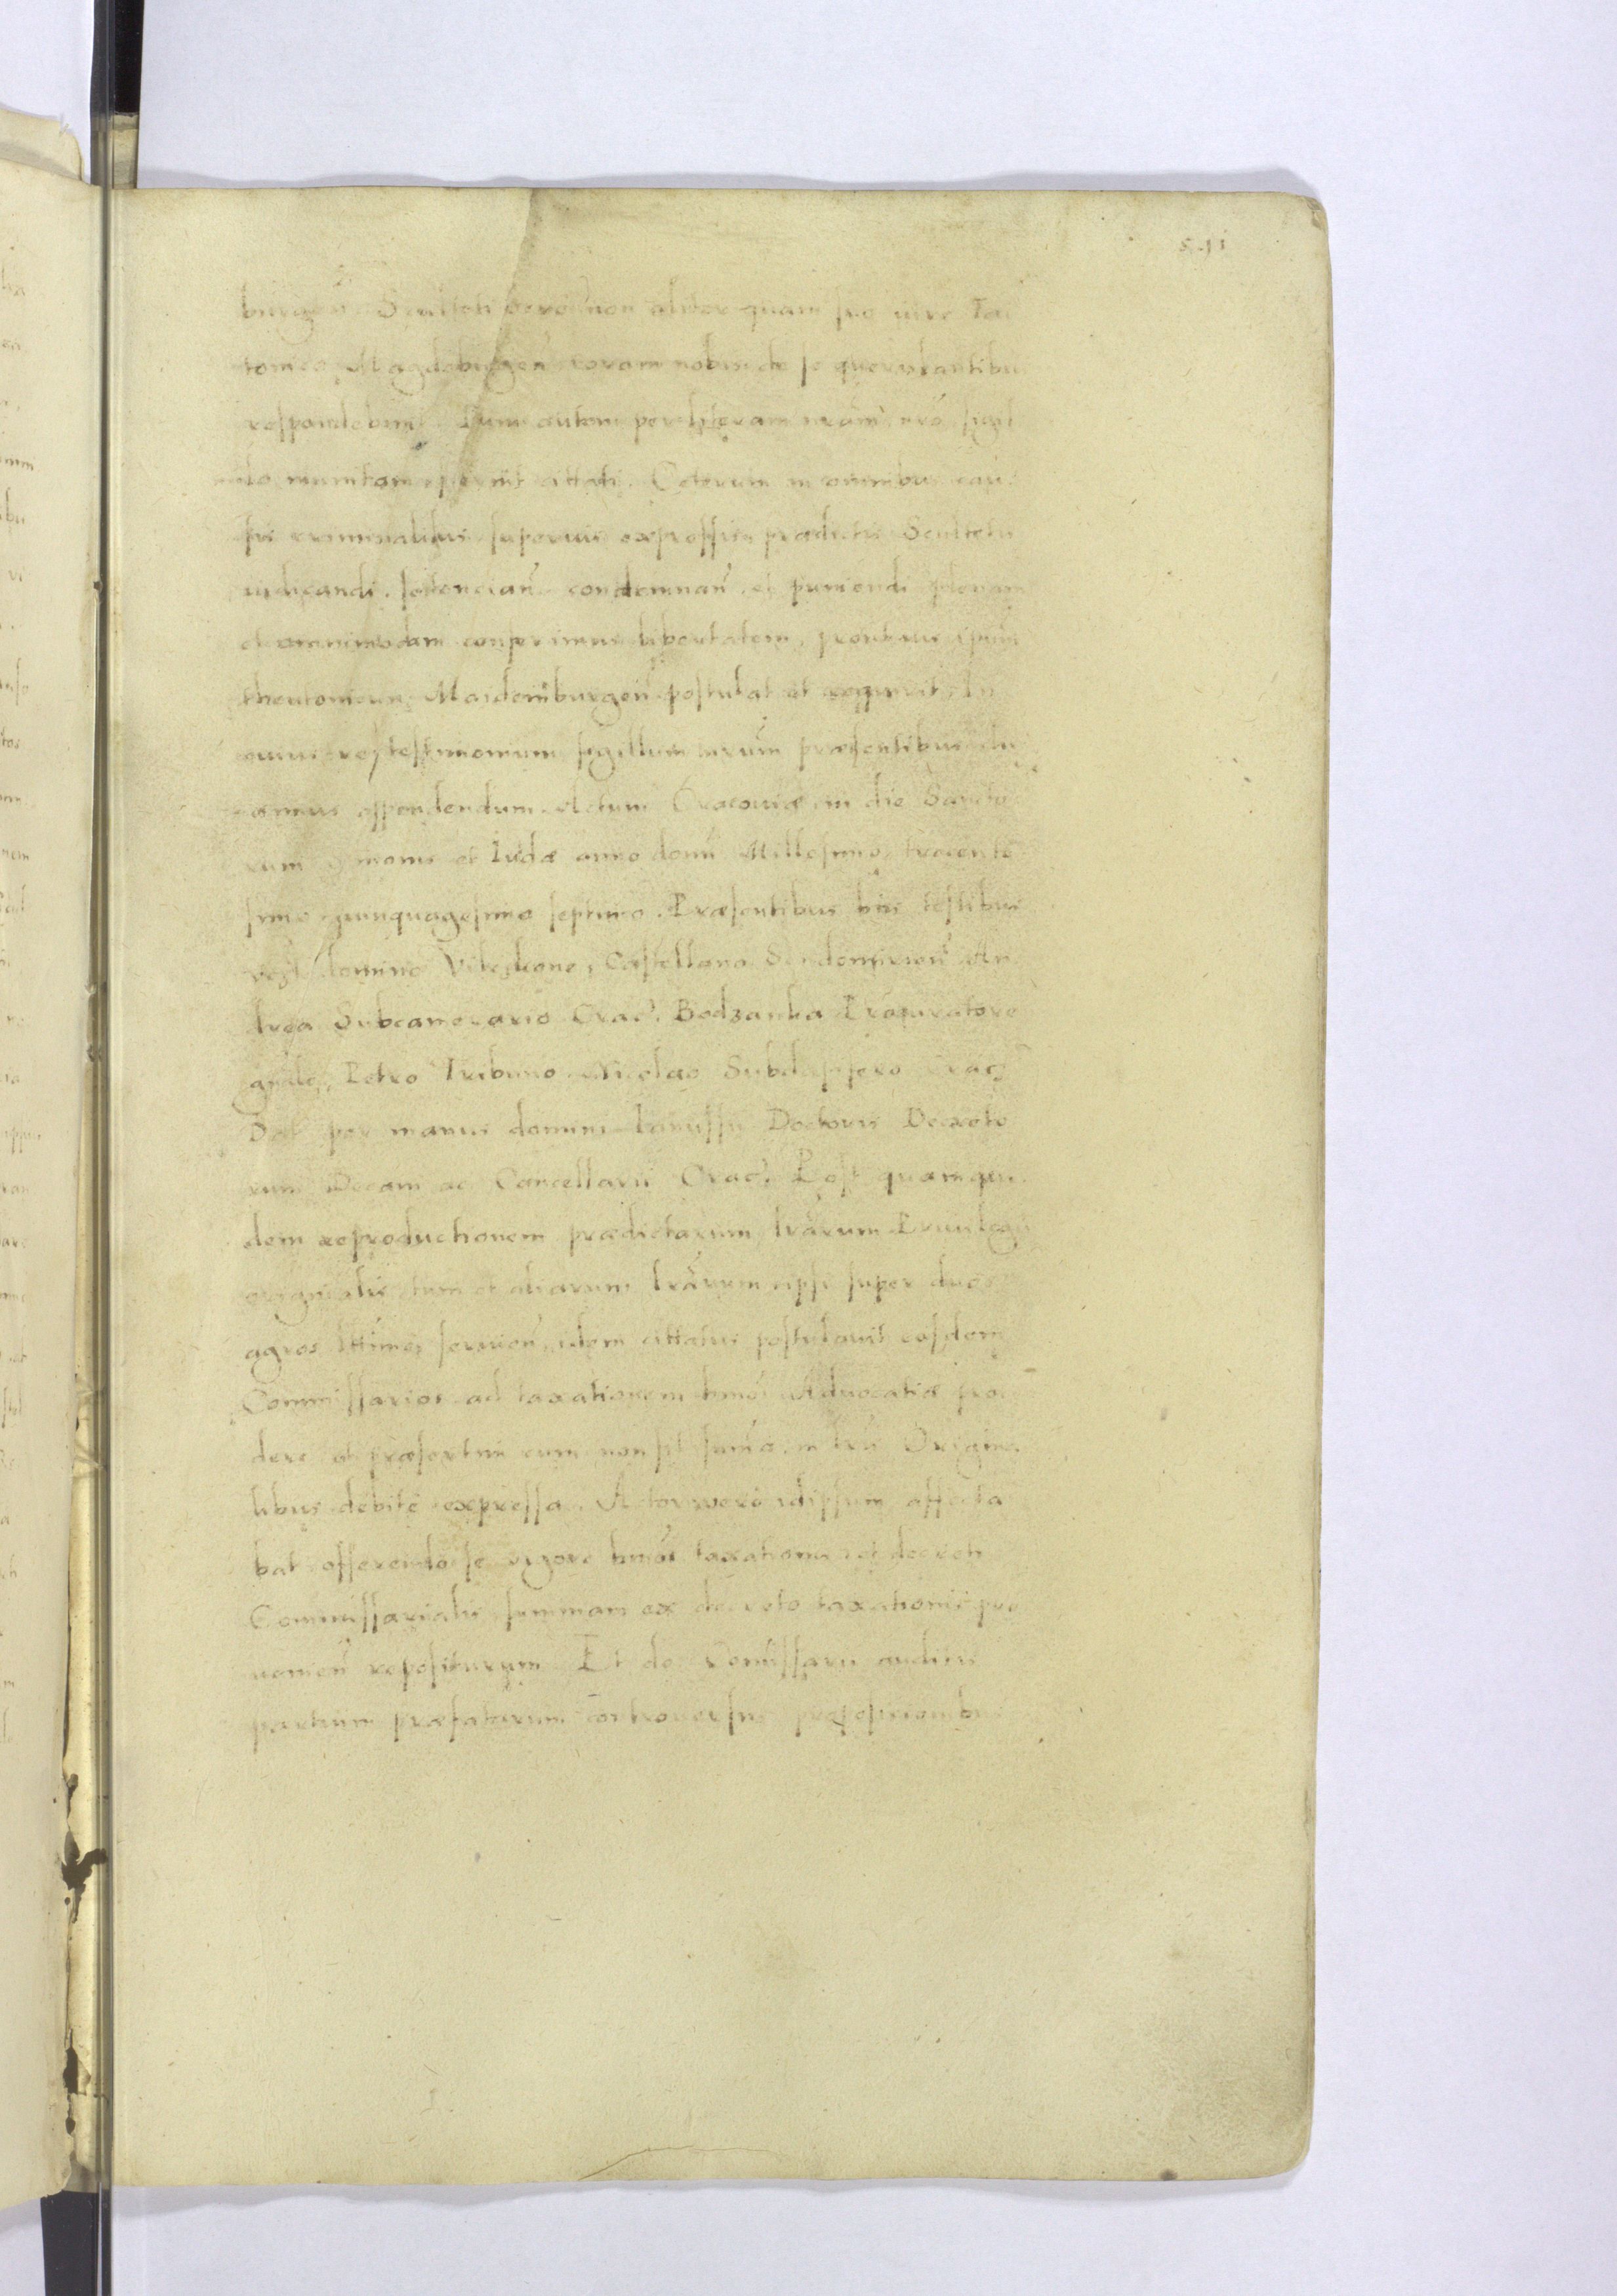 541
burgeñ. Sculteti vero non aliter quam suo iure Teu
tonico Magdeburgeñ coram nobis de se querulantibus
respondebunt. Dum autem per literam nram nro sigil
lo munitam fuerint citati. Ceterum in omnibus cau
sis criminalibus superius expressis prædictis Scultetis
iudicandi, sentenciañ condemnañ et puniendi plenam
et omnimodam conferimus libertatem, prout ius ipsum
theutonicum Maidemburgeñ postulat et requirit. In
cuius rei testimonium sigillum nrum præsentibus du
ximus appendendum. Actum Cracoviæ in die Sancto
rum Simonis et Iudæ anno domi Millesimo trecente
simo quinquagesimo septimo. Præsentibus his testibus
domino castellano Sendomirieñ An
drea Subcamerario Crac. Bodzanta Procuratore
gnäli, Petro Tribuno Nicolao Subdapifero Crac
Dat per manus domini Ianussii Doctoris Decreto
rum Decani ac Cancellarii Crac. Post quamqui
dem reproductionem prædictarum lrarum Privilegii
originalis tum et aliarum lrarum ipsi super duos
agros ltime servieñ, idem cittatus postulavit eosdem
Commissarios ad taxationem hmoi Advocatiæ proce
dere et præsertim cum non sit summa in lris Origina
libus debite expressa. Actor vero idipsum affecta
bat offerendo se vigore hmoi taxationis et decreti
Commissarialis summam ex decreto taxationis pro
venieñ repositurum. Et dc Comissarii auditis
partium præfatarum controversiis propositionibus